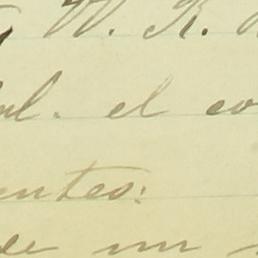 W. R.
el co
entes:
de un